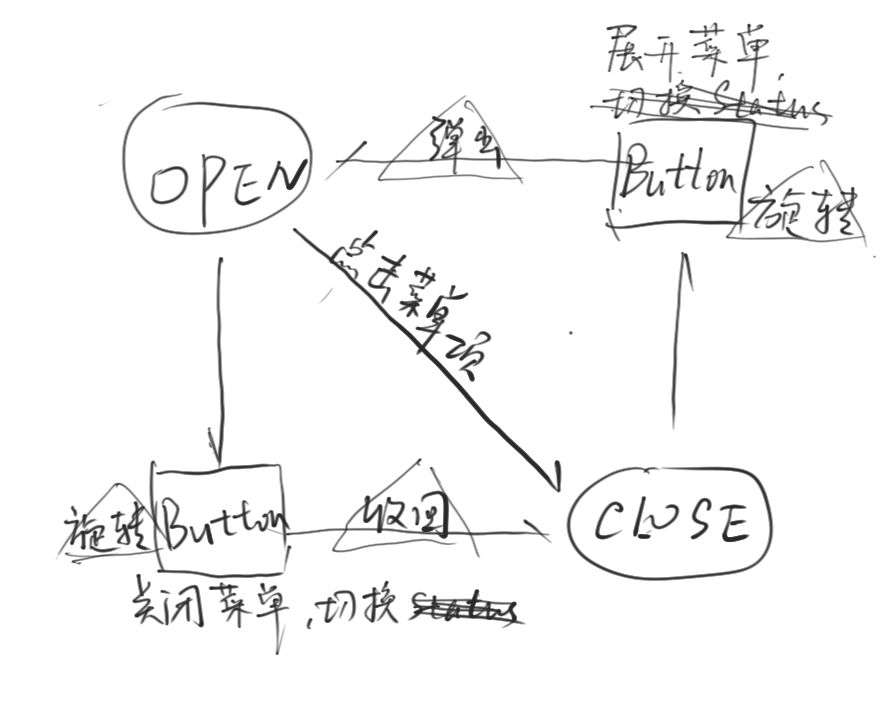 展开菜单,
切换 Status
弹出
OPEN
Button
旋转
点击菜单项
旋转
Button
收回
CLOSE
关闭菜单,切换 Status